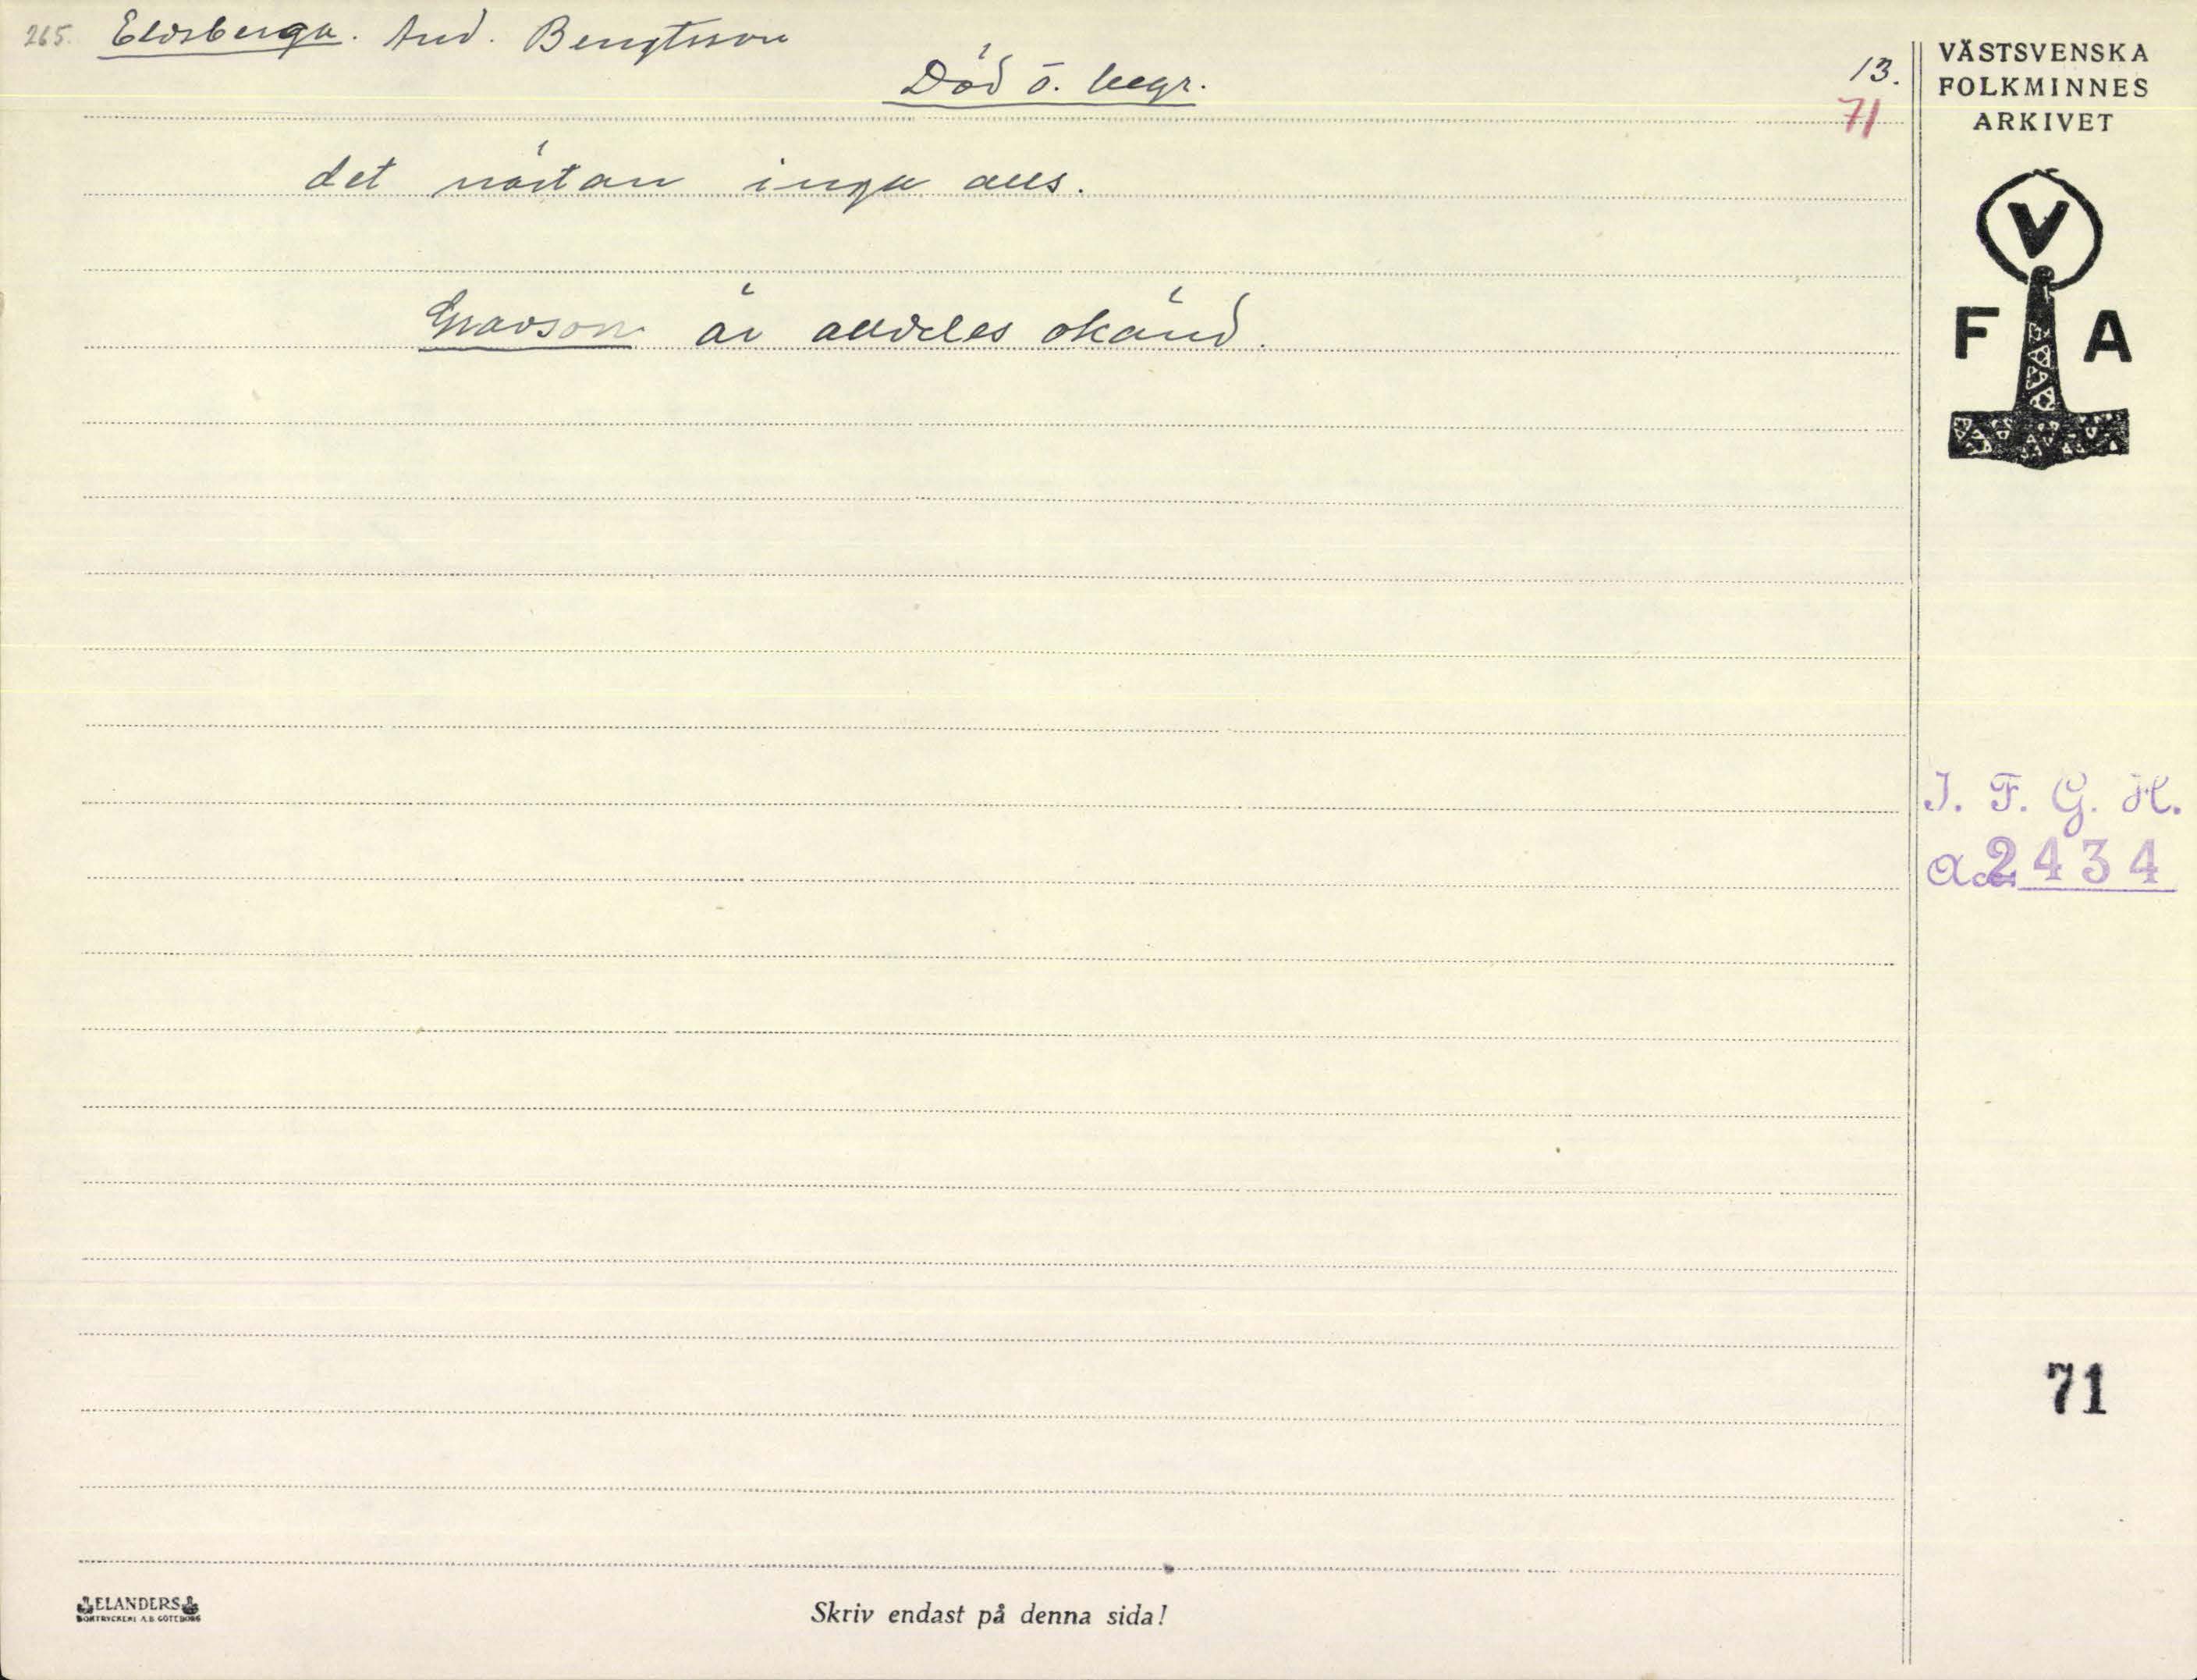 265. Eldsberga. And. Bengtsson
Död o. begr.
13.
71
det nästan inga alls.
Gravson är alldeles okänd.
VÄSTSVENSKA
FOLKMINNES
ARKIVET
V
F A
I. F. G. H.
Acc. 2434
71
ELANDERS
BOKTRYCKERI A.B. GÖTEBORG
Skriv endast på denna sida!